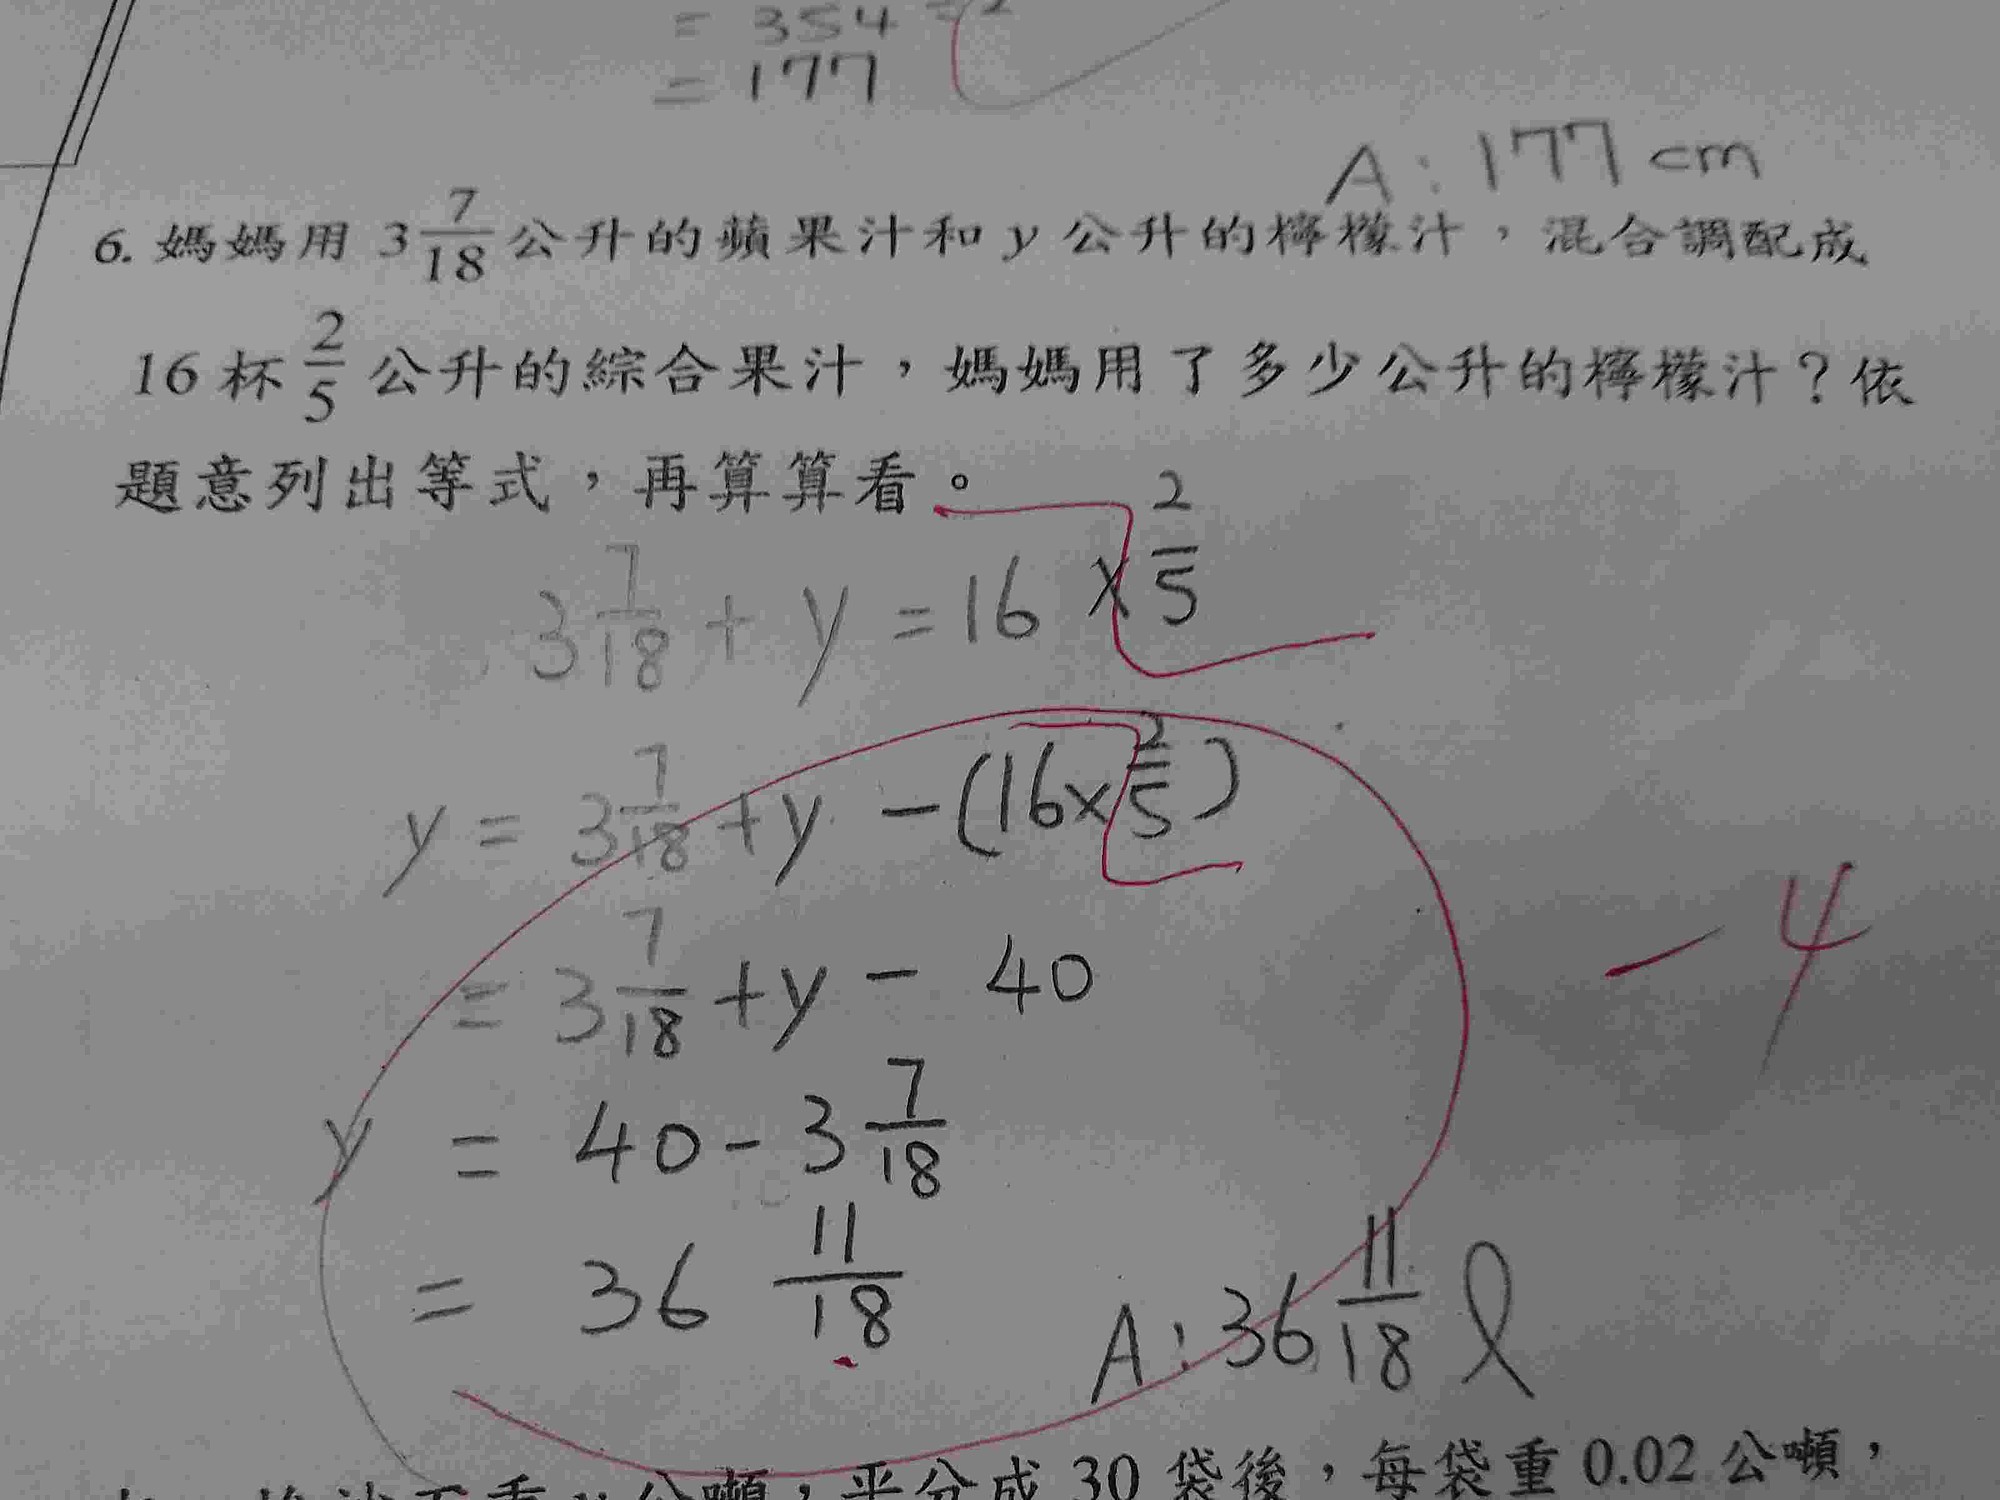 = 354 ÷ 2
= 177
A : 177 cm
6. 媽媽用 3 7/18 公升的蘋果汁和 y 公升的檸檬汁，混合調配成
16 杯 2/5 公升的綜合果汁，媽媽用了多少公升的檸檬汁？依
題意列出等式，再算算看。
3 7/18 + y = 16 × 2/5
y = 3 7/18 + y - (16 × 2/5)
= 3 7/18 + y - 40
- 4
y = 40 - 3 7/18
= 36 11/18
A : 36 11/18 ℓ
公噸，平分成 30 袋後，每袋重 0.02 公噸，